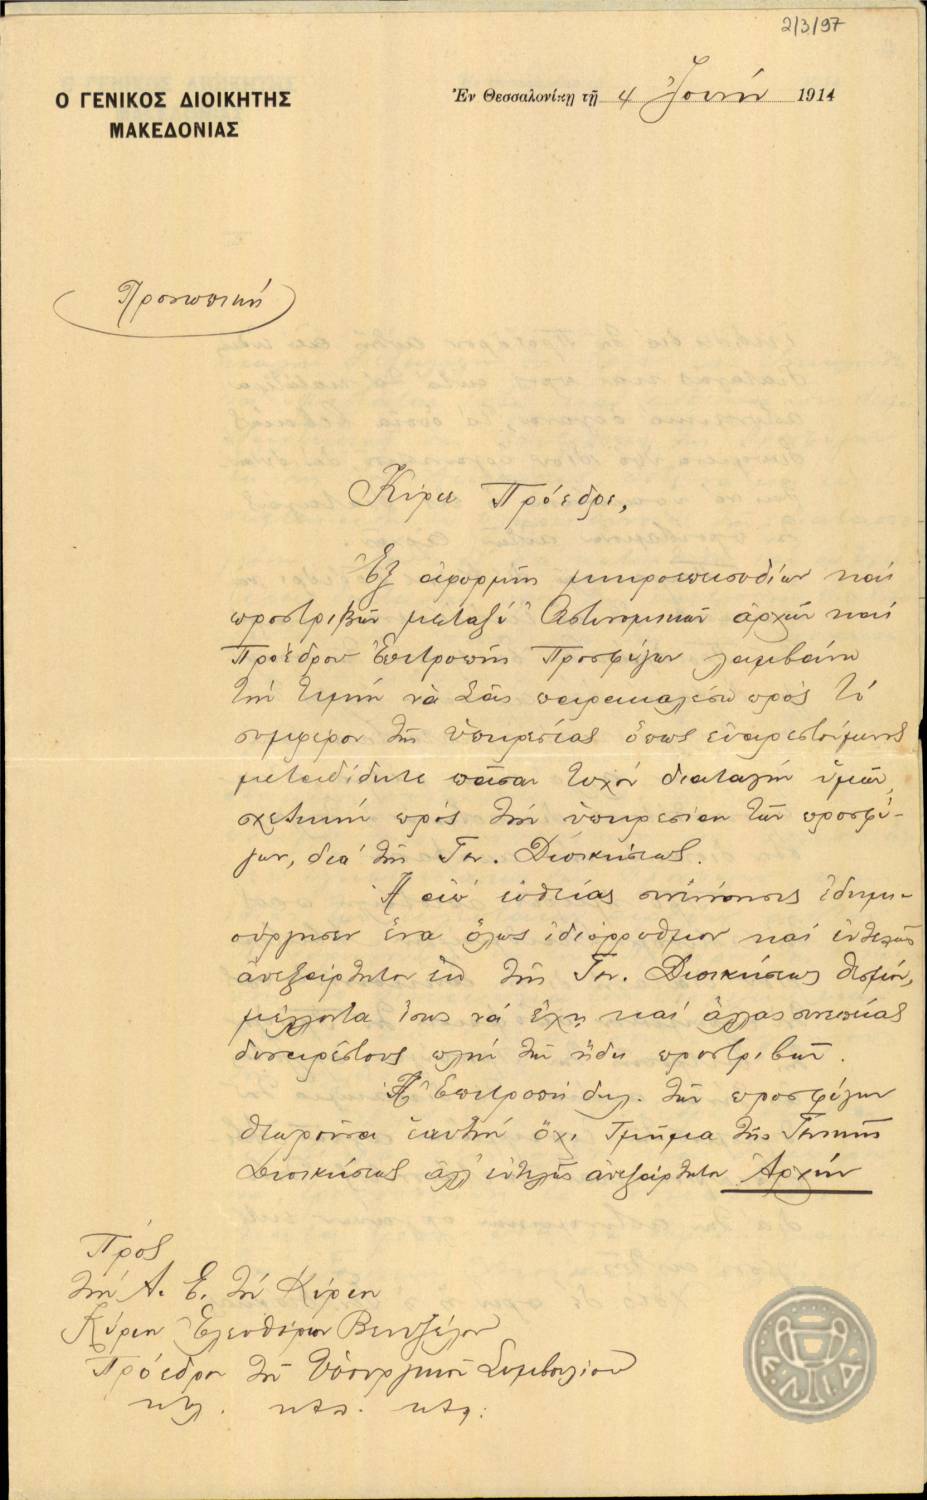 2/3/97
Ο ΓΕΝΙΚΟΣ ΔΙΟΙΚΗΤΗΣ
ΜΑΚΕΔΟΝΙΑΣ
Ἐν Θεσσαλονίκῃ τῇ 4 Ἰουνίου 1914
Προσωπική
Κύριε Πρόεδρε,
Ἐξ ἀφορμῆς μικροεπεισοδίων καί
προστριβῶν μεταξύ Ἀστυνομικῶν ἀρχῶν καί
Προέδρου Ἐπιτροπῆς Προσφύγων λαμβάνω
τήν τιμήν νὰ Σᾶς παρακαλέσω πρὸς τό
συμφέρον τῆς ὑπηρεσίας ὅπως εὐαρεστούμενος
μεταδίδητε πᾶσαν τυχόν διαταγήν ὑμῶν,
σχετικήν πρός τήν ὑπηρεσίαν τῶν προσφύ-
γων, διά τῆς Γεν. Διοικήσεως.
Ἡ ἀπ' εὐθείας συνεννόησις ἐδημι-
ούργησεν ἕνα ὅλως ἰδιόρρυθμον καί ἐντελῶς
ἀνεξάρτητον ἐκ τῆς Γεν. Διοικήσεως θεσμόν,
μέλλοντα ἴσως νά ἔχῃ καί ἄλλας συνεπείας
δυσαρέστους πλήν τῶν ἤδη προστριβῶν.
Ἡ Ἐπιτροπή δηλ. τῶν προσφύγων
θεωροῦσα ἑαυτήν ὄχι τμῆμα τῆς Γενικῆς
Διοικήσεως ἀλλ' ἐντελῶς ἀνεξάρτητον Ἀρχήν
Πρός
τήν Α. Ε. τόν Κύριον
Κύριον Ἐλευθέριον Βενιζέλον
Πρόεδρον τοῦ Ὑπουργικοῦ Συμβουλίου
κτλ. κτλ. κτλ.
Ε Λ Ι Α